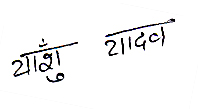 याशुँ यादव